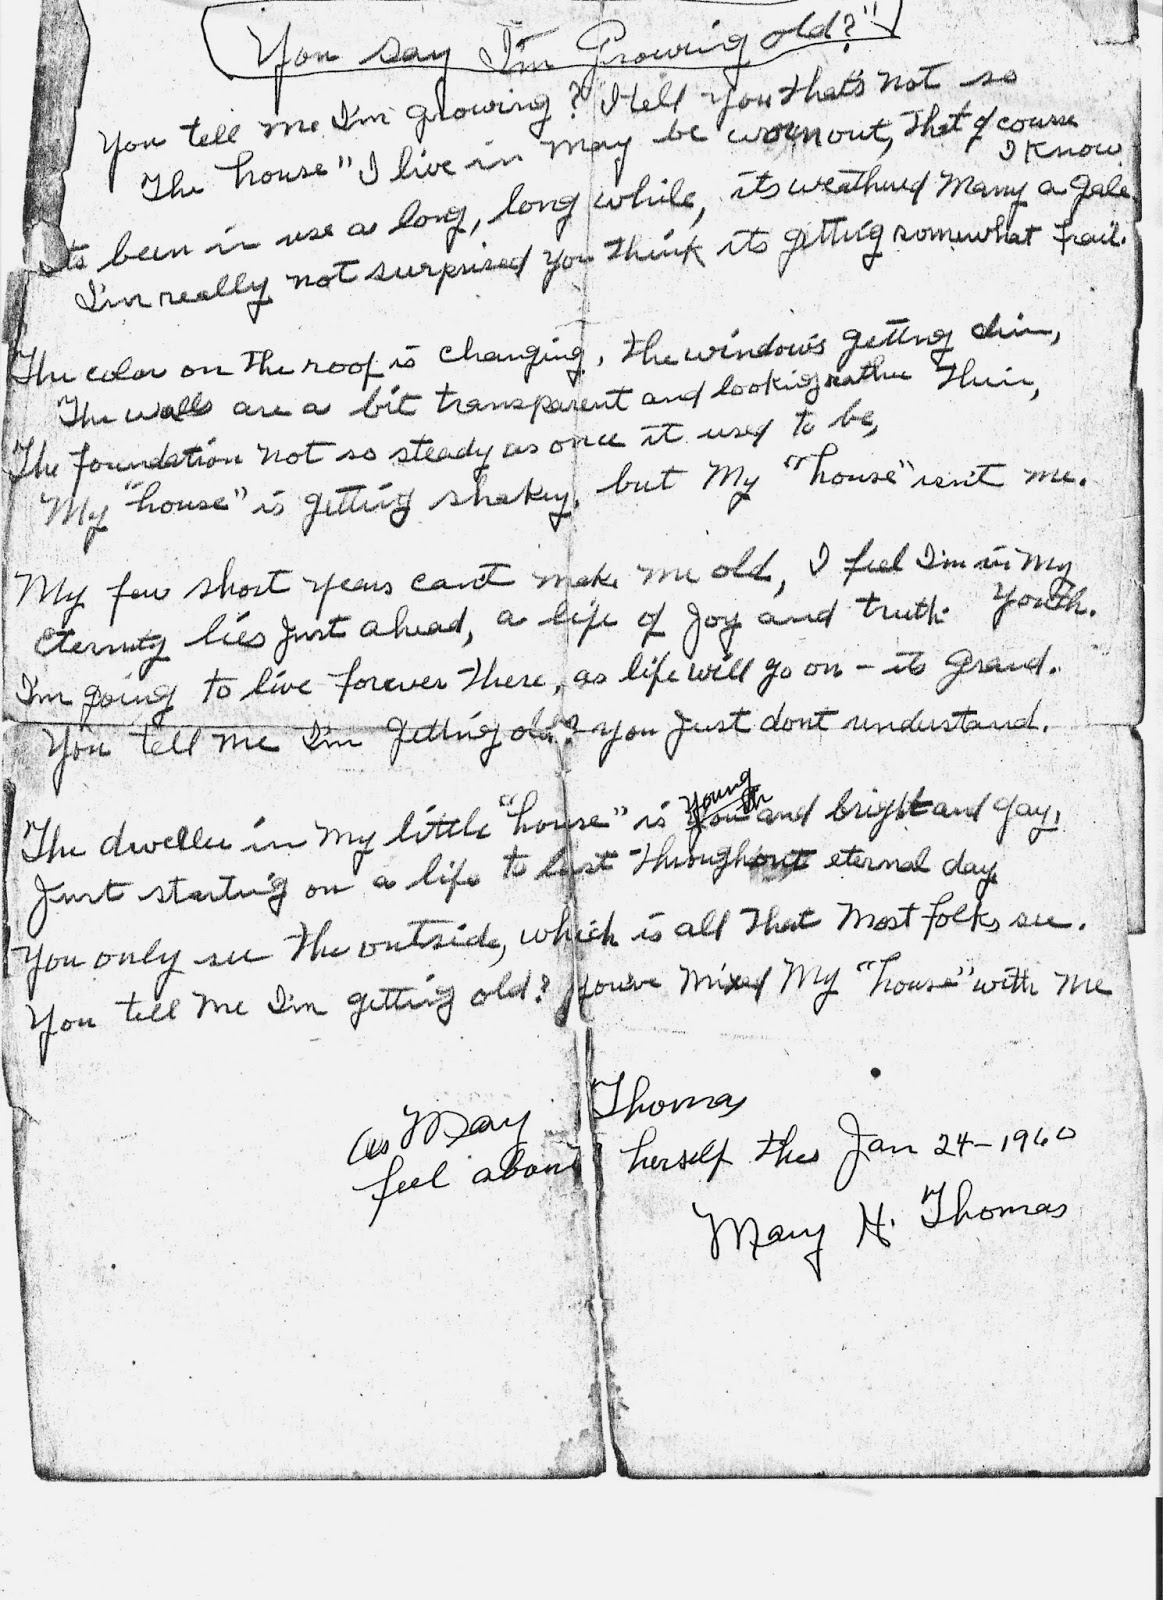 You say I'm Growing old?"
You tell me I'm growing? I tell you that's not so
The house" I live in may be worn out, that of course
I know
Its been in use a long, long while, its weathered many a gale
I'm really not surprised you think its getting somewhat frail.
The color on the roof is changing, the windows getting dim,
The walls are a bit transparent and looking rather thin,
The foundation not so steady as once it used to be,
My "house" is getting shakey, but my "house" isn't me.
My few short years can't make me old, I feel I'm in my
youth.
Eternity lies just ahead, a life of joy and truth.
I'm going to live forever there, as life will go on - its grand.
You tell me I'm getting old? you just dont understand.
young
The dweller in my little "house" is and bright and gay,
Just starting on a life to last throughout eternal day
You only see the outside, which is all that most folks see.
You tell me I'm getting old? you've mixed my "house" with me
as May Thomas
feel about herself this Jan 24-1960
Mary H. Thomas